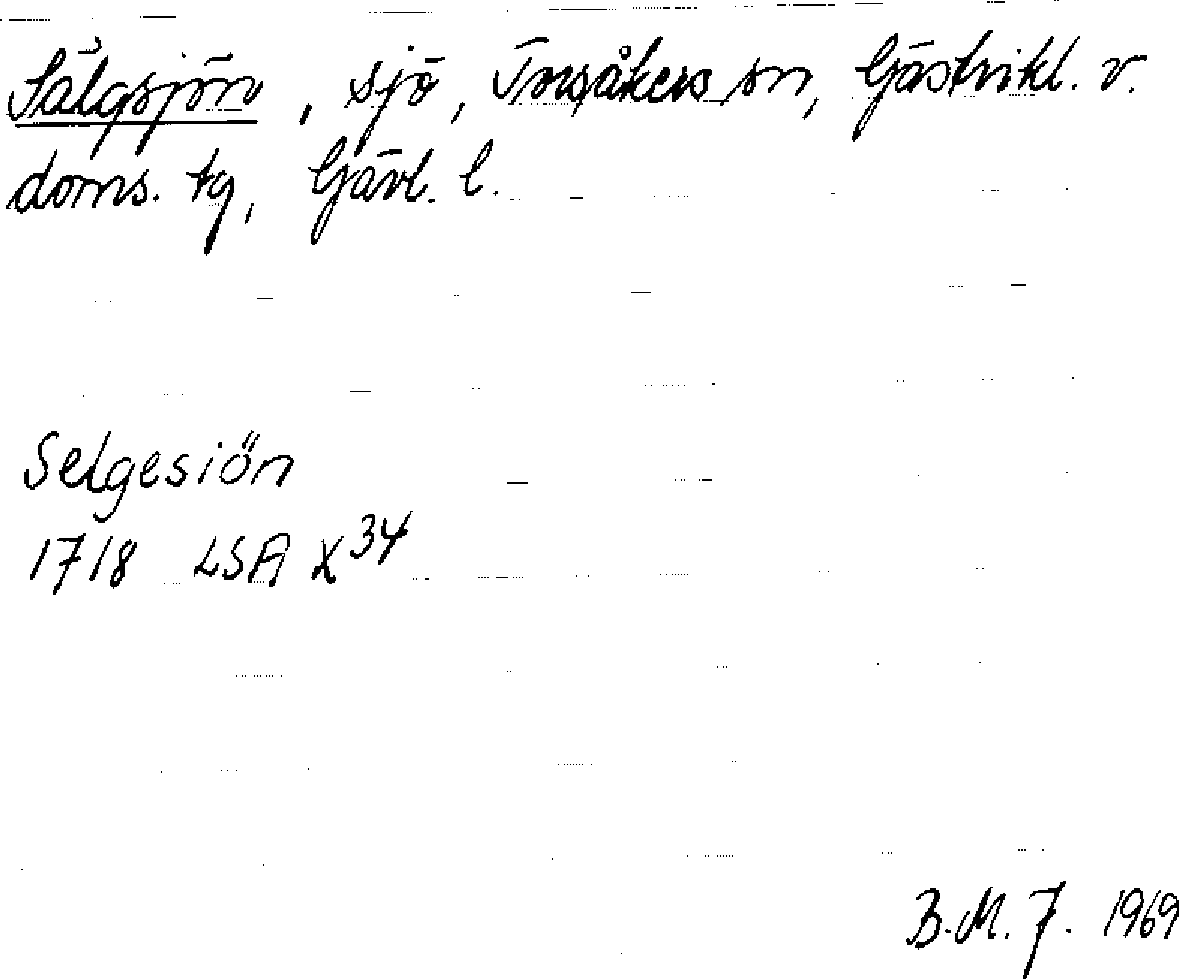 Sälgsjön, sjö, Torsåkers sn, Gästrikl. v.
doms. tg, Gävl. l.
Selgesiön
1718 LSA X34
B.M.J. 1969